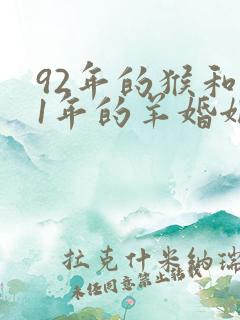 92年的猴和
1年的羊婚姻
拉克什米纳瑞
未经同意禁止转载